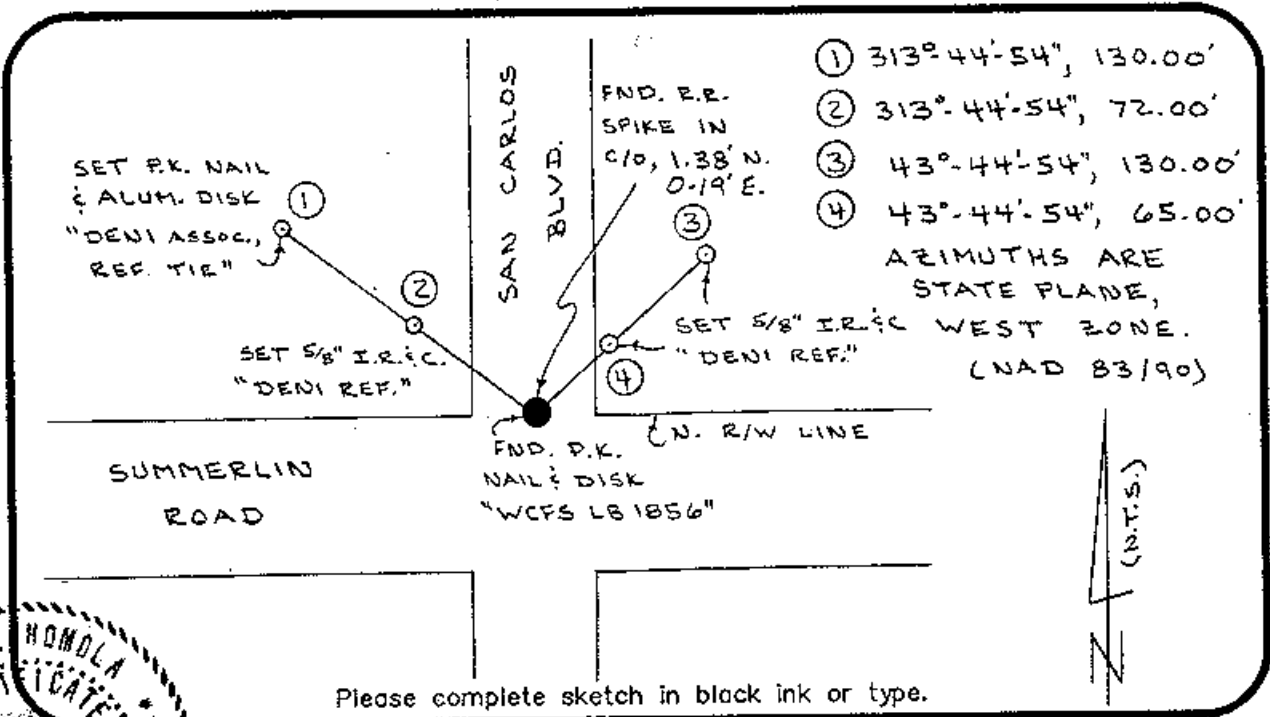 ① 313°-44'-54", 130.00'
② 313°-44'-54", 72.00'
③ 43°-44'-54", 130.00'
④ 43°-44'-54", 65.00'
AZIMUTHS ARE
STATE PLANE,
WEST ZONE.
(NAD 83/90)
SAN CARLOS
BLVD.
FND. R.R.
SPIKE IN
C/O, 1.38' N.
0.19' E.
SET P.K. NAIL
& ALUM. DISK
"DENI ASSOC.,
REF. TIE"
①
②
③
④
SET 5/8" I.R.&C.
"DENI REF."
SET 5/8" I.R.&C
"DENI REF."
FND. P.K.
NAIL & DISK
"WCFS LB 1856"
N. R/W LINE
SUMMERLIN
ROAD
(N.T.S.)
N
HOMOLA
Please complete sketch in black ink or type.